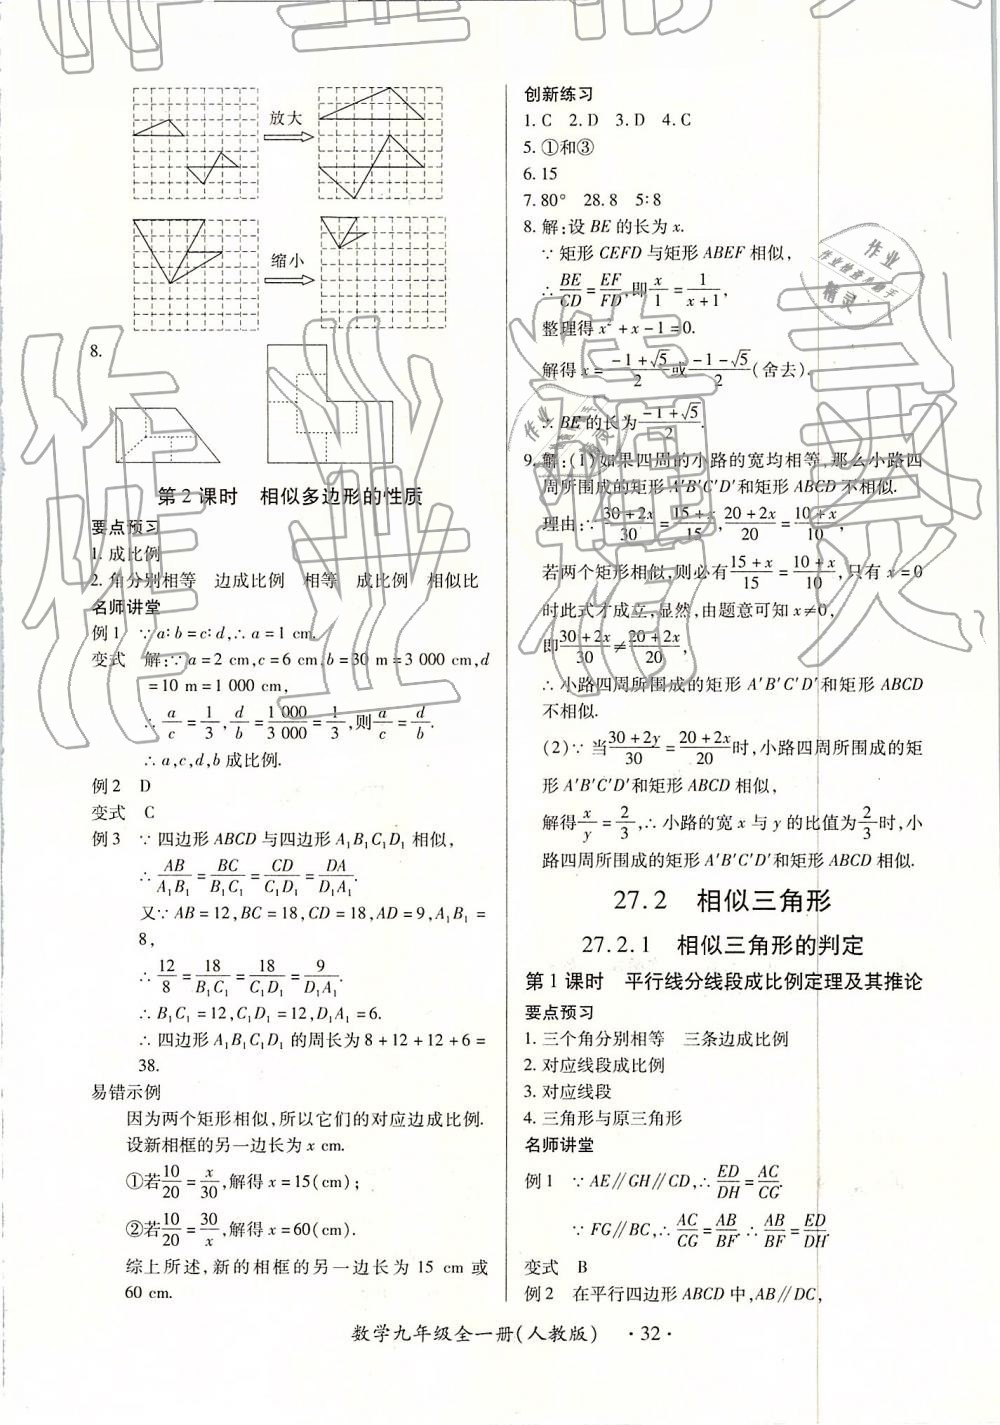 放大
缩小
8.
第2课时 相似多边形的性质
要点预习
1. 成比例
2. 角分别相等 边成比例 相等 成比例 相似比
名师讲堂
例1 ∵a∶b=c∶d,∴a=1 cm.
变式 解:∵a=2 cm,c=6 cm,b=30 m=3 000 cm,d
=10 m=1 000 cm,
∴a/c=1/3,d/b=1 000/3 000=1/3,则a/c=d/b.
∴a,c,d,b成比例.
例2 D
变式 C
例3 ∵四边形ABCD与四边形A₁B₁C₁D₁相似,
∴AB/A₁B₁=BC/B₁C₁=CD/C₁D₁=DA/D₁A₁.
又∵AB=12,BC=18,CD=18,AD=9,A₁B₁=
8,
∴12/8=18/B₁C₁=18/C₁D₁=9/D₁A₁.
∴B₁C₁=12,C₁D₁=12,D₁A₁=6.
∴四边形A₁B₁C₁D₁的周长为8+12+12+6=
38.
易错示例
因为两个矩形相似,所以它们的对应边成比例.
设新相框的另一边长为x cm.
①若10/20=x/30,解得x=15(cm);
②若10/20=30/x,解得x=60(cm).
综上所述,新的相框的另一边长为15 cm或
60 cm.
创新练习
1. C 2. D 3. D 4. C
5. ①和③
6. 15
7. 80° 28.8 5∶8
8. 解:设BE的长为x.
∵矩形CEFD与矩形ABEF相似,
∴BE/CD=EF/FD,即x/1=1/(x+1),
整理得x²+x-1=0.
解得x=(-1+√5)/2或(-1-√5)/2(舍去).
∴BE的长为(-1+√5)/2.
9. 解:(1)如果四周的小路的宽均相等,那么小路四
周所围成的矩形A′B′C′D′和矩形ABCD不相似.
理由:∵(30+2x)/30=(15+x)/15,(20+2x)/20=(10+x)/10,
若两个矩形相似,则必有(15+x)/15=(10+x)/10,只有x=0
时此式才成立,显然,由题意可知x≠0,
即(30+2x)/30≠(20+2x)/20,
∴小路四周所围成的矩形A′B′C′D′和矩形ABCD
不相似.
(2)∵当(30+2y)/30=(20+2x)/20时,小路四周所围成的矩
形A′B′C′D′和矩形ABCD相似,
解得x/y=2/3,∴小路的宽x与y的比值为2/3时,小
路四周所围成的矩形A′B′C′D′和矩形ABCD相似.
27.2 相似三角形
27.2.1 相似三角形的判定
第1课时 平行线分线段成比例定理及其推论
要点预习
1. 三个角分别相等 三条边成比例
2. 对应线段成比例
3. 对应线段
4. 三角形与原三角形
名师讲堂
例1 ∵AE∥GH∥CD,∴ED/DH=AC/CG.
∵FG∥BC,∴AC/CG=AB/BF.∴AB/BF=ED/DH.
变式 B
例2 在平行四边形ABCD中,AB∥DC,
数学九年级全一册(人教版) ·32·